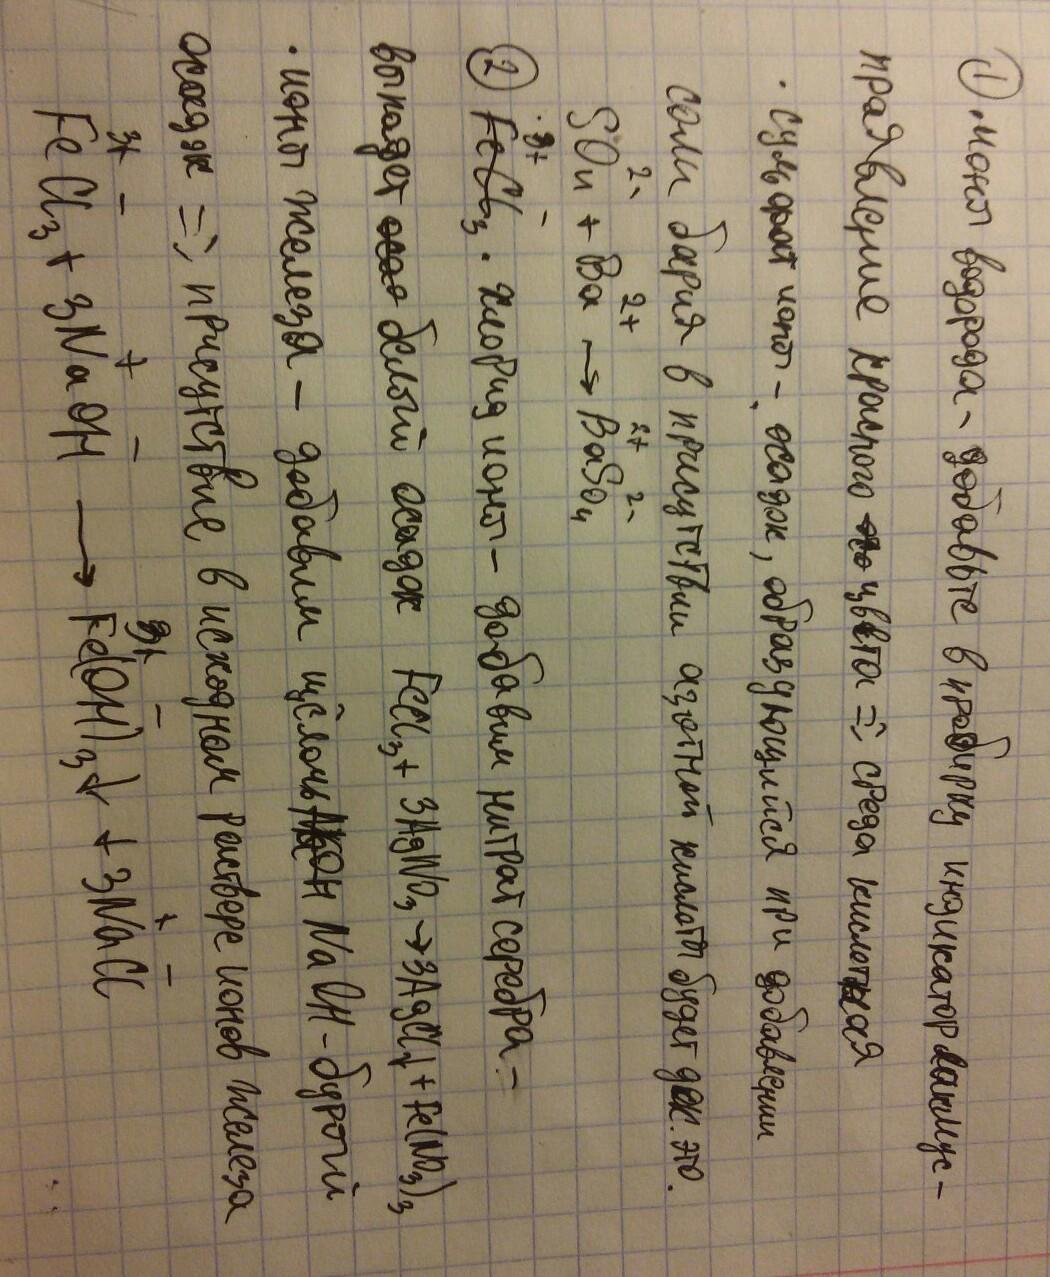 ① · ионы водорода - добавьте в пробирку индикатор лакмус -
праявление красного цвета => среда кислотная
· сульфат ионы - осадок, образующийся при добавлении
соли бария в присутствии азотной кислоты будет док. это.
SO₄²⁻ + Ba²⁺ → Ba²⁺SO₄²⁻
② Fe³⁺Cl₃⁻ · хлорид ионы - добавим нитрат серебра -
выпадет белый осадок FeCl₃ + 3AgNO₃ → 3AgCl↓ + Fe(NO₃)₃
· ионы железа - добавим щёлочь NaOH - бурый
осадок => присутствие в исходном растворе ионов железа
Fe³⁺Cl₃⁻ + 3Na⁺OH⁻ → Fe³⁺(OH)₃⁻↓ + 3Na⁺Cl⁻